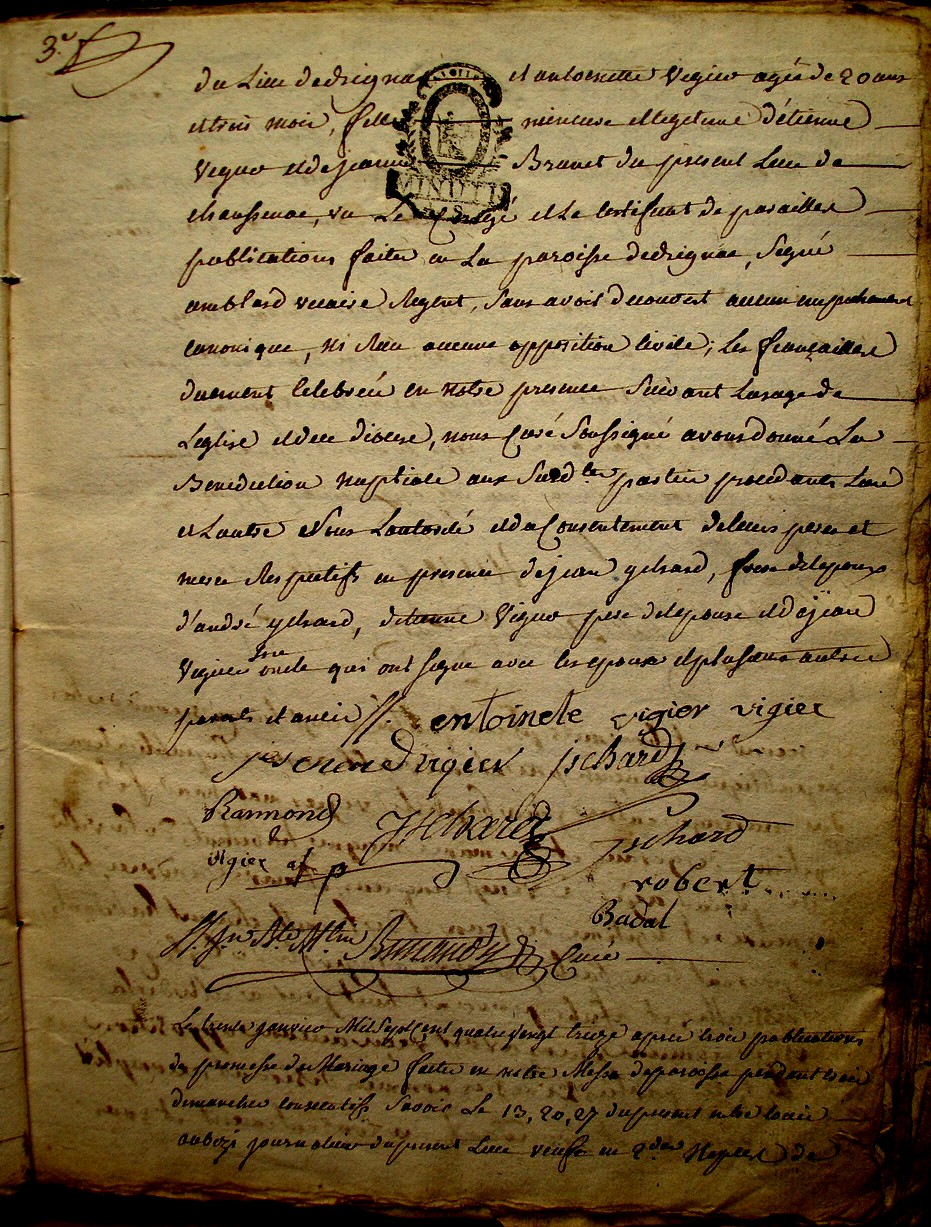 3.e
du Lieu dedrignac et antoinette Vigier agée de 20 ans
et trois mois, fille mineure et legitime d'étienne
Vigier et de jeanne Brunet du present Lieu de
chaussenac, vu Le Congé et Le Certificat de pareilles
publications faites en La paroisse dedrignac, Signé
amblard vicaire Regent, Sans avoir decouvert aucun empechement
canonique, ni Reçu aucune opposition civile; Les françailles
duement Celebrées en notre presence Suivant Lusage de
Leglise et du diocese, nous Curé Soussigné avons donné La
Benediction nuptiale aux Susd.tes parties procedantes Lune
et Lautre Sous Lautorité et du Consentement de leurs peres et
meres Respectifs en presence de jean ychard, frere de lepoux
d'andré ychard, détienne Vigier pere de lepouse et de jean
Vigier oncle qui ont signé avec les epoux et plusieurs autres
parents et amis
entoinete vigier vigier
vigier jchard
Raimond
jchard jchard
vigier
robert
Badal
Curé
MINUTE
Le trente janvier Mil Sept Cent quatre vingt treize après trois publications
de promesse de Mariage faites en notre Messe de paroisse pendant trois
dimanches consecutifs Savoir Le 13, 20, 27 du present entre Louis
journalier du present Lieu veuf en 2.des Nopces de